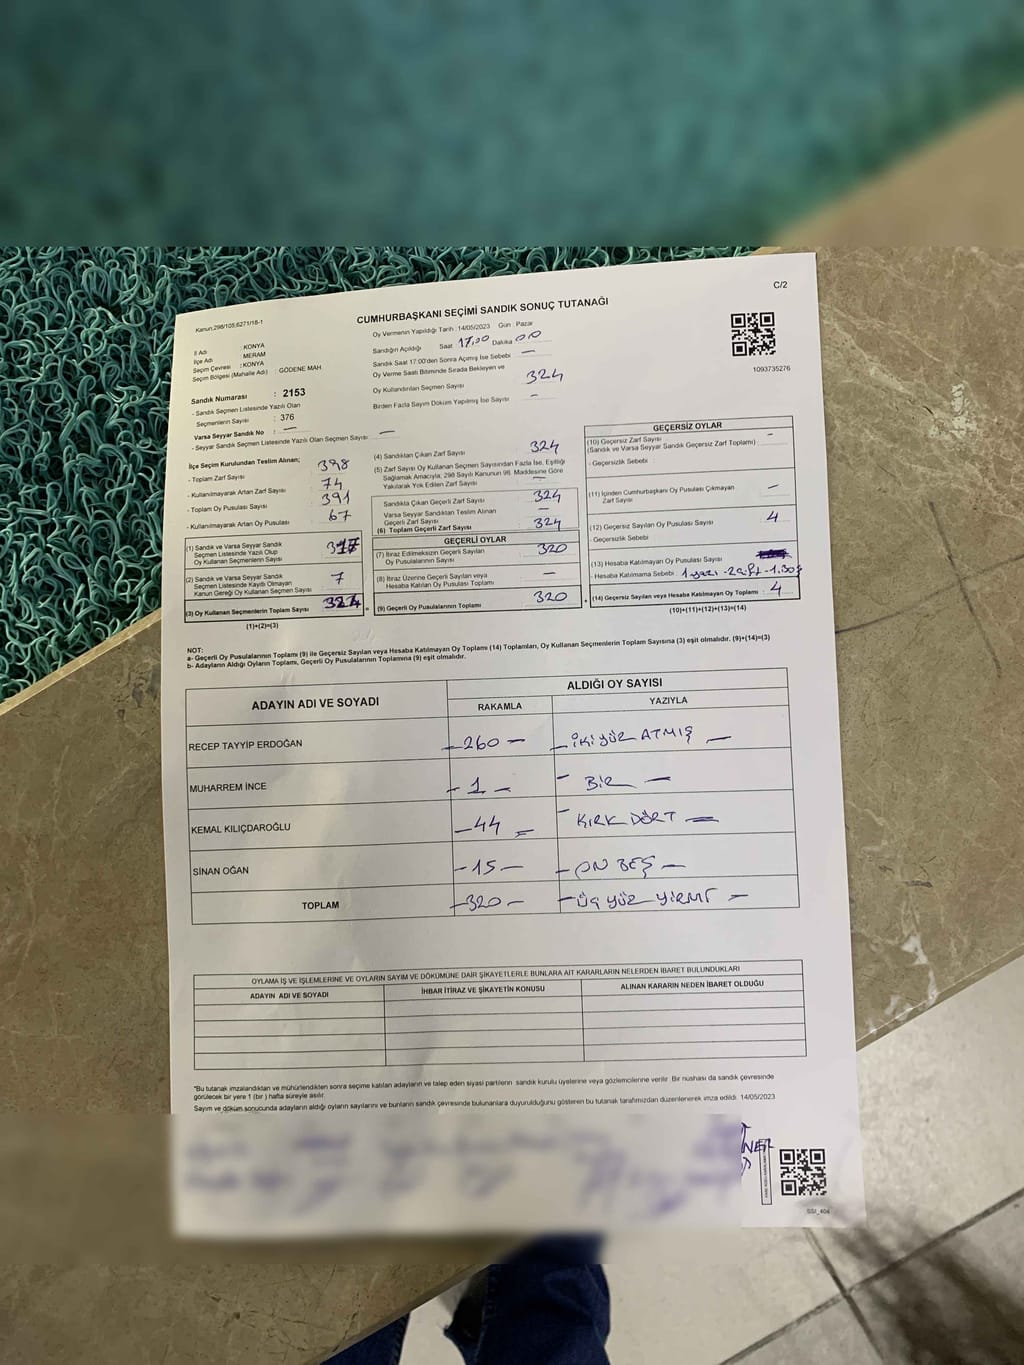 C/2
Kanun,298/105,6271/18-1
CUMHURBAŞKANI SEÇİMİ SANDIK SONUÇ TUTANAĞI
Oy Vermenin Yapıldığı Tarih : 14/05/2023 Gün : Pazar
İl Adı : KONYA
İlçe Adı : MERAM
Seçim Çevresi : KONYA
Seçim Bölgesi (Mahalle Adı) : GÖDENE MAH
Sandığın Açıldığı Saat 17,00 Dakika 00
Sandık Saat 17:00'den Sonra Açılmış İse Sebebi —
Oy Verme Saati Bitiminde Sırada Bekleyen ve
Oy Kullandırılan Seçmen Sayısı 324
Birden Fazla Sayım Döküm Yapılmış İse Sayısı -
1093735276
Sandık Numarası : 2153
- Sandık Seçmen Listesinde Yazılı Olan
Seçmenlerin Sayısı : 376
Varsa Seyyar Sandık No : —
- Seyyar Sandık Seçmen Listesinde Yazılı Olan Seçmen Sayısı: —
İlçe Seçim Kurulundan Teslim Alınan;
- Toplam Zarf Sayısı 398
- Kullanılmayarak Artan Zarf Sayısı 74
- Toplam Oy Pusulası Sayısı 391
- Kullanılmayarak Artan Oy Pusulası 67
(1) Sandık ve Varsa Seyyar Sandık
Seçmen Listesinde Yazılı Olup
Oy Kullanan Seçmenlerin Sayısı 317
(2) Sandık ve Varsa Seyyar Sandık
Seçmen Listesinde Kayıtlı Olmayan
Kanun Gereği Oy Kullanan Seçmen Sayısı 7
(3) Oy Kullanan Seçmenlerin Toplam Sayısı 324 =
(1)+(2)=(3)
(4) Sandıktan Çıkan Zarf Sayısı 324
(5) Zarf Sayısı Oy Kullanan Seçmen Sayısından Fazla İse, Eşitliği
Sağlamak Amacıyla; 298 Sayılı Kanunun 98. Maddesine Göre
Yakılarak Yok Edilen Zarf Sayısı —
Sandıkta Çıkan Geçerli Zarf Sayısı 324
Varsa Seyyar Sandıktan Teslim Alınan
Geçerli Zarf Sayısı —
(6) Toplam Geçerli Zarf Sayısı 324
GEÇERLİ OYLAR
(7) İtiraz Edilmeksizin Geçerli Sayılan
Oy Pusulalarının Sayısı 320
(8) İtiraz Üzerine Geçerli Sayılan veya
Hesaba Katılan Oy Pusulası Toplamı —
(9) Geçerli Oy Pusulalarının Toplamı 320 +
GEÇERSİZ OYLAR
(10) Geçersiz Zarf Sayısı -
(Sandık ve Varsa Seyyar Sandık Geçersiz Zarf Toplamı)
- Geçersizlik Sebebi :
(11) İçinden Cumhurbaşkanı Oy Pusulası Çıkmayan
Zarf Sayısı -
(12) Geçersiz Sayılan Oy Pusulası Sayısı 4
- Geçersizlik Sebebi :
(13) Hesaba Katılmayan Oy Pusulası Sayısı
- Hesaba Katılmama Sebebi :
(14) Geçersiz Sayılan veya Hesaba Katılmayan Oy Toplamı : 4
(10)+(11)+(12)+(13)=(14)
NOT:
a- Geçerli Oy Pusulalarının Toplamı (9) ile Geçersiz Sayılan veya Hesaba Katılmayan Oy Toplamı (14) Toplamları, Oy Kullanan Seçmenlerin Toplam Sayısına (3) eşit olmalıdır. (9)+(14)=(3)
b- Adayların Aldığı Oyların Toplamı, Geçerli Oy Pusulalarının Toplamına (9) eşit olmalıdır.
ADAYIN ADI VE SOYADI
ALDIĞI OY SAYISI
RAKAMLA YAZIYLA
RECEP TAYYİP ERDOĞAN —260— —İKİYÜZ ATMIŞ —
MUHARREM İNCE - 1 - - BİR —
KEMAL KILIÇDAROĞLU —44 = - KIRK DÖRT =
SİNAN OĞAN -15- - ON BEŞ -
TOPLAM -320 - -ÜÇ YÜZ YİRMİ -
OYLAMA İŞ VE İŞLEMLERİNE VE OYLARIN SAYIM VE DÖKÜMÜNE DAİR ŞİKAYETLERLE BUNLARA AİT KARARLARIN NELERDEN İBARET BULUNDUKLARI
ADAYIN ADI VE SOYADI İHBAR İTİRAZ VE ŞİKAYETİN KONUSU ALINAN KARARIN NEDEN İBARET OLDUĞU
"Bu tutanak imzalandıktan ve mühürlendikten sonra seçime katılan adayların ve talep eden siyasi partilerin sandık kurulu üyelerine veya gözlemcilerine verilir. Bir nüshası da sandık çevresinde
görülecek bir yere 1 (bir ) hafta süreyle asılır.
Sayım ve döküm sonucunda adayların aldığı oyların sayılarını ve bunların sandık çevresinde bulunanlara duyurulduğunu gösteren bu tutanak tarafımızdan düzenlenerek imza edildi. 14/05/2023
SSI_404